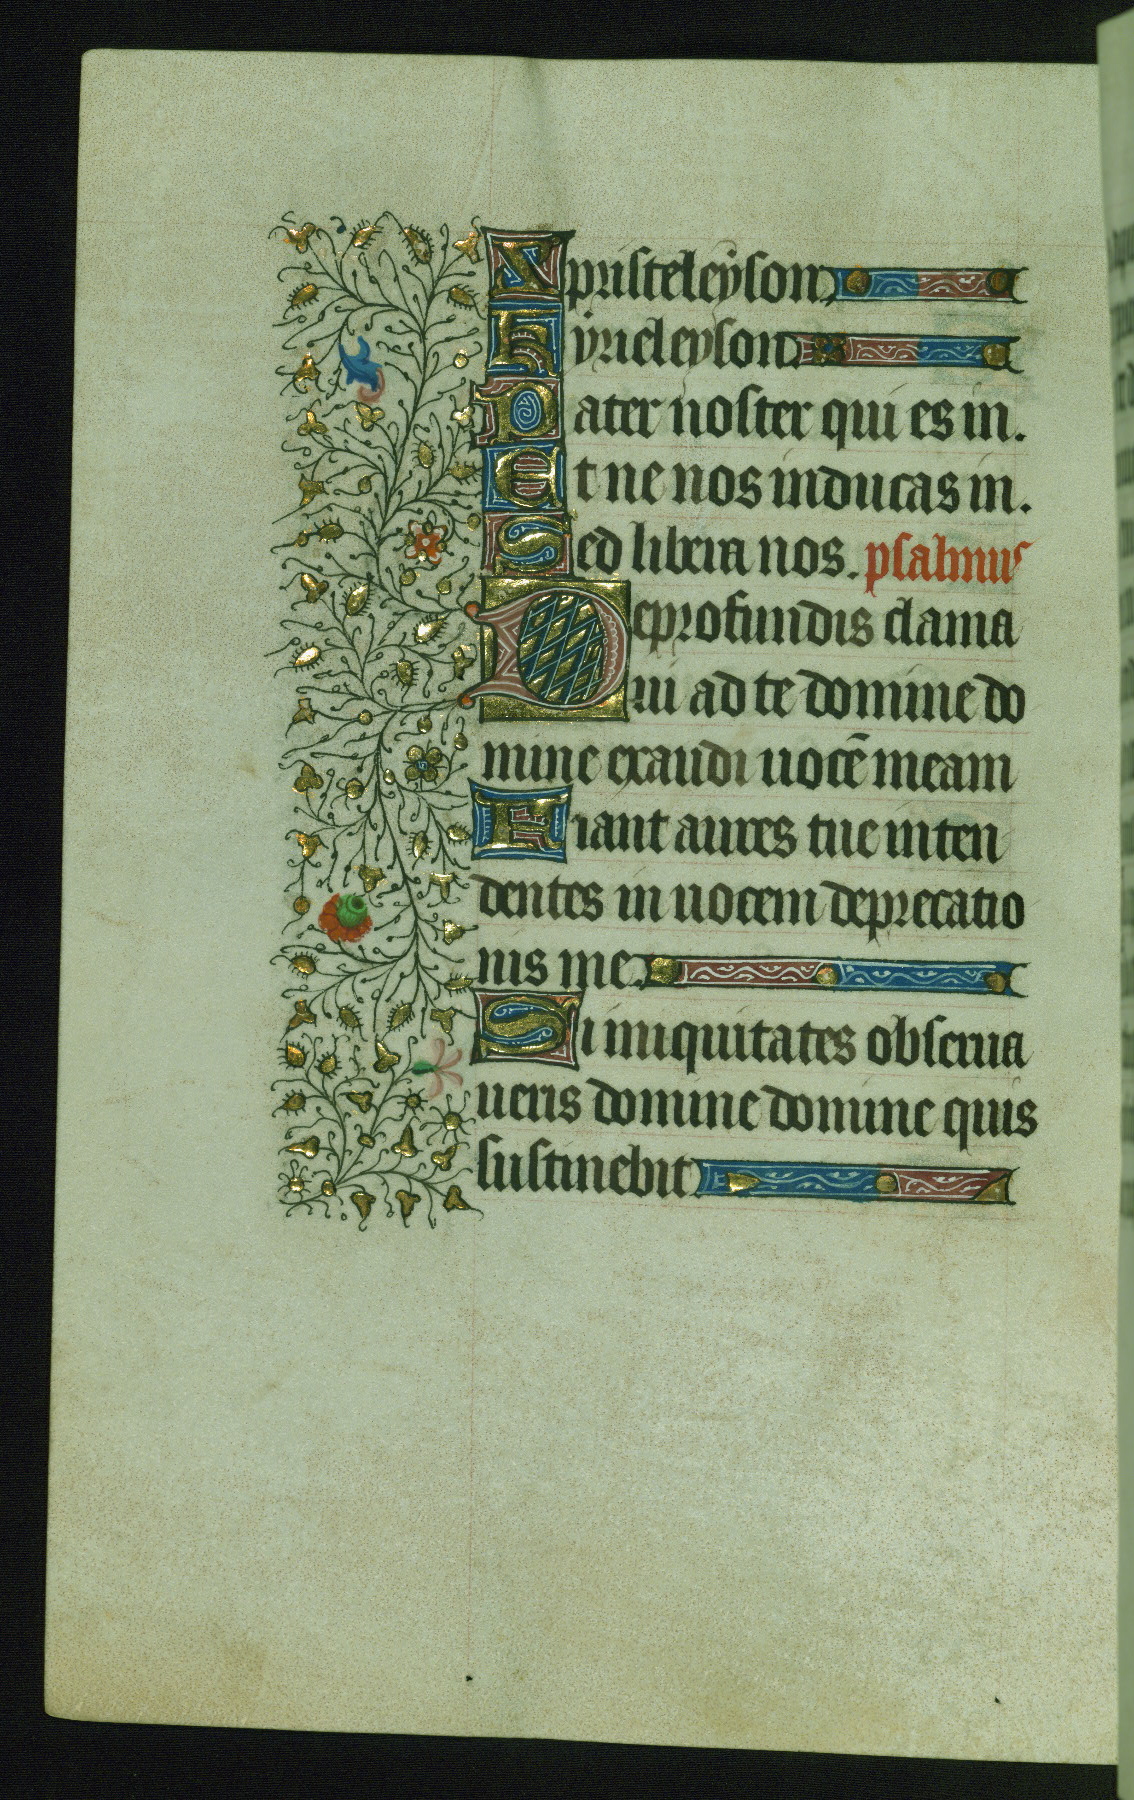 Xpristeleyson.
Kyrieleyson.
Pater noster qui es in.
Et ne nos inducas in.
Sed libera nos. psalmus
De profundis clama
ui ad te domine do
mine exaudi uocē meam
Fiant aures tue inten
dentes in uocem deprecatio
nis me.
Si iniquitates obserua
ueris domine domine quis
sustinebit